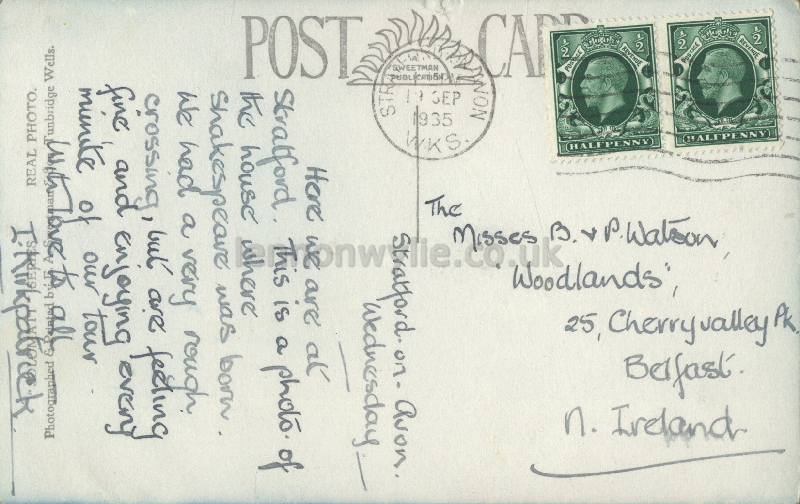 POST CARD
A
SWEETMAN
PUBLICATION
STRATFORD ON AVON
11 SEP
1935
WKS.
½ ½
POSTAGE REVENUE
HALFPENNY
½ ½
POSTAGE REVENUE
HALFPENNY
Stratford-on-Avon.
Wednesday.
Here we are at
Stratford. This is a photo of
the house where
Shakespeare was born.
We had a very rough
crossing, but are feeling
fine and enjoying every
minute of our tour
With love to all
I. Kirkpatrick
The
Misses B. & P. Watson,
"Woodlands",
25, Cherryvalley Pk.
Belfast.
N. Ireland.
"SOLOMATT" SERIES. REAL PHOTO.
Photographed & Printed by E. A. Sweetman & Son, Tunbridge Wells.
lennonwylie.co.uk